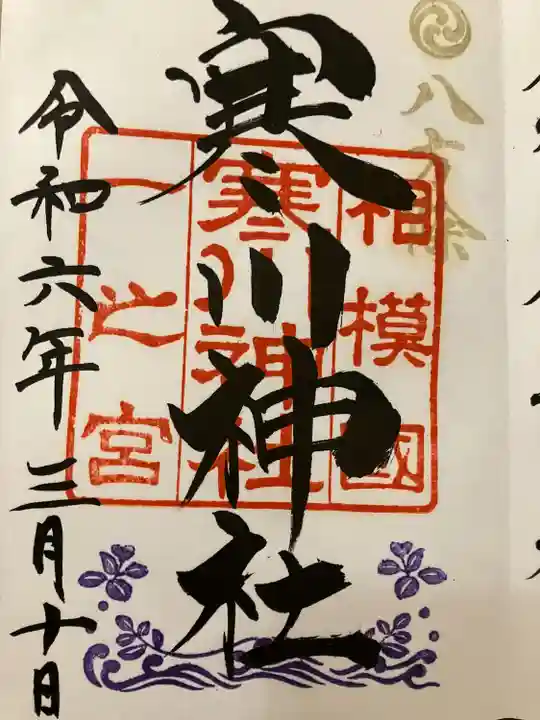 八方除
相模國
寒川神社
一之宮
寒川神社
令和六年三月十日